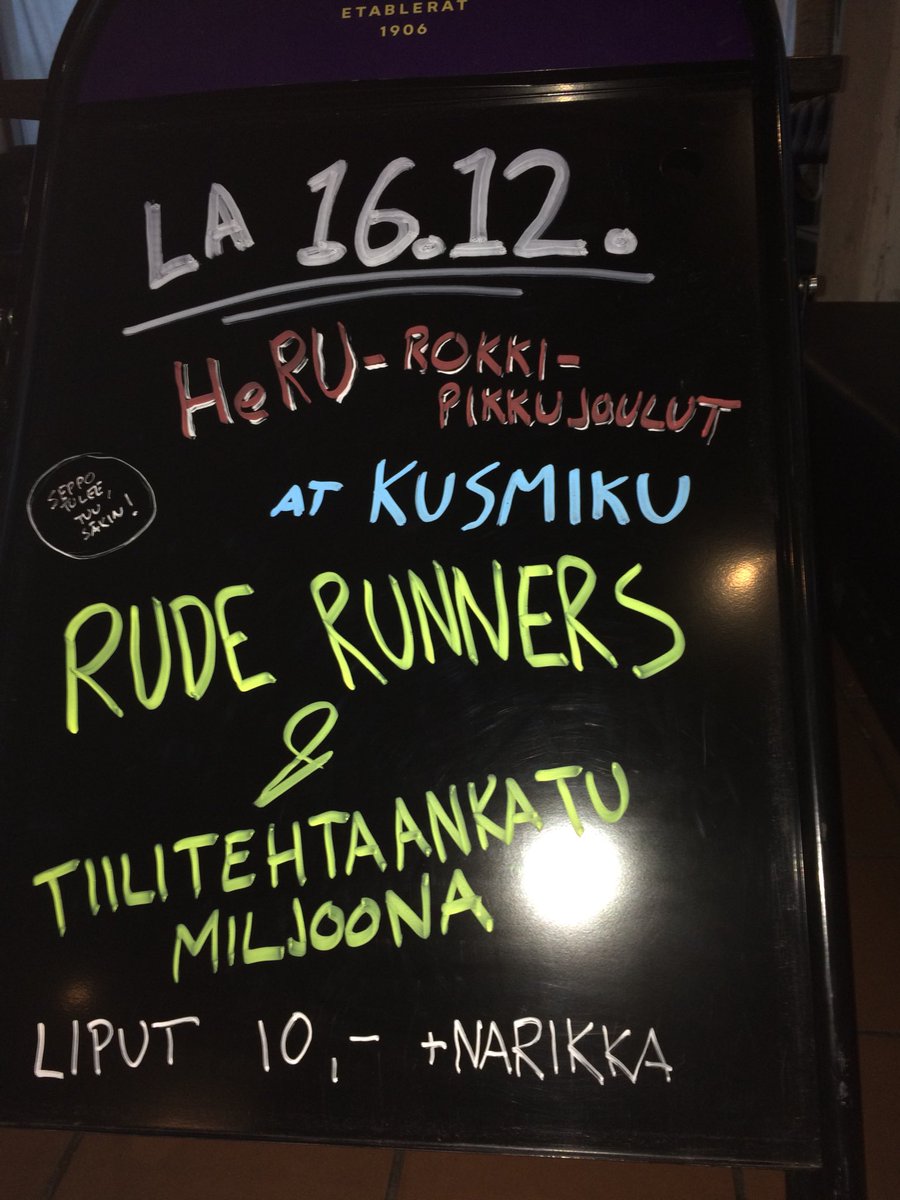 ETABLERAT
1906
LA 16.12.
HeRU-ROKKI-
PIKKUJOULUT
AT KUSMIKU
SEPPO
TULEE,
TUU
SÄKIN!
RUDE RUNNERS
&
TIILITEHTAANKATU
MILJOONA
LIPUT 10,- +NARIKKA